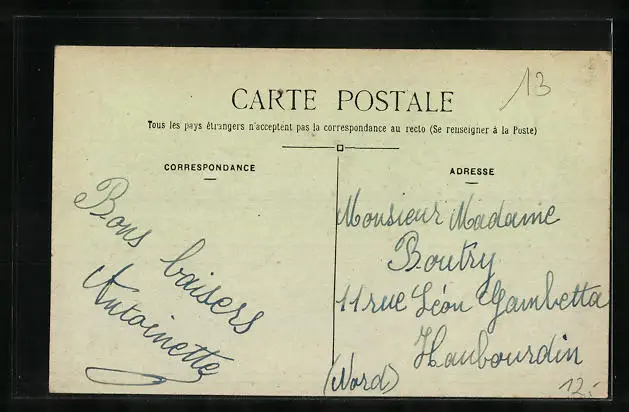 13
CARTE POSTALE
Tous les pays étrangers n'acceptent pas la correspondance au recto (Se renseigner à la Poste)
CORRESPONDANCE
Bons baisers
Antoinette
ADRESSE
Monsieur Madame
Boutry
11 rue Léon Gambetta
Haubourdin
(Nord)
12.-